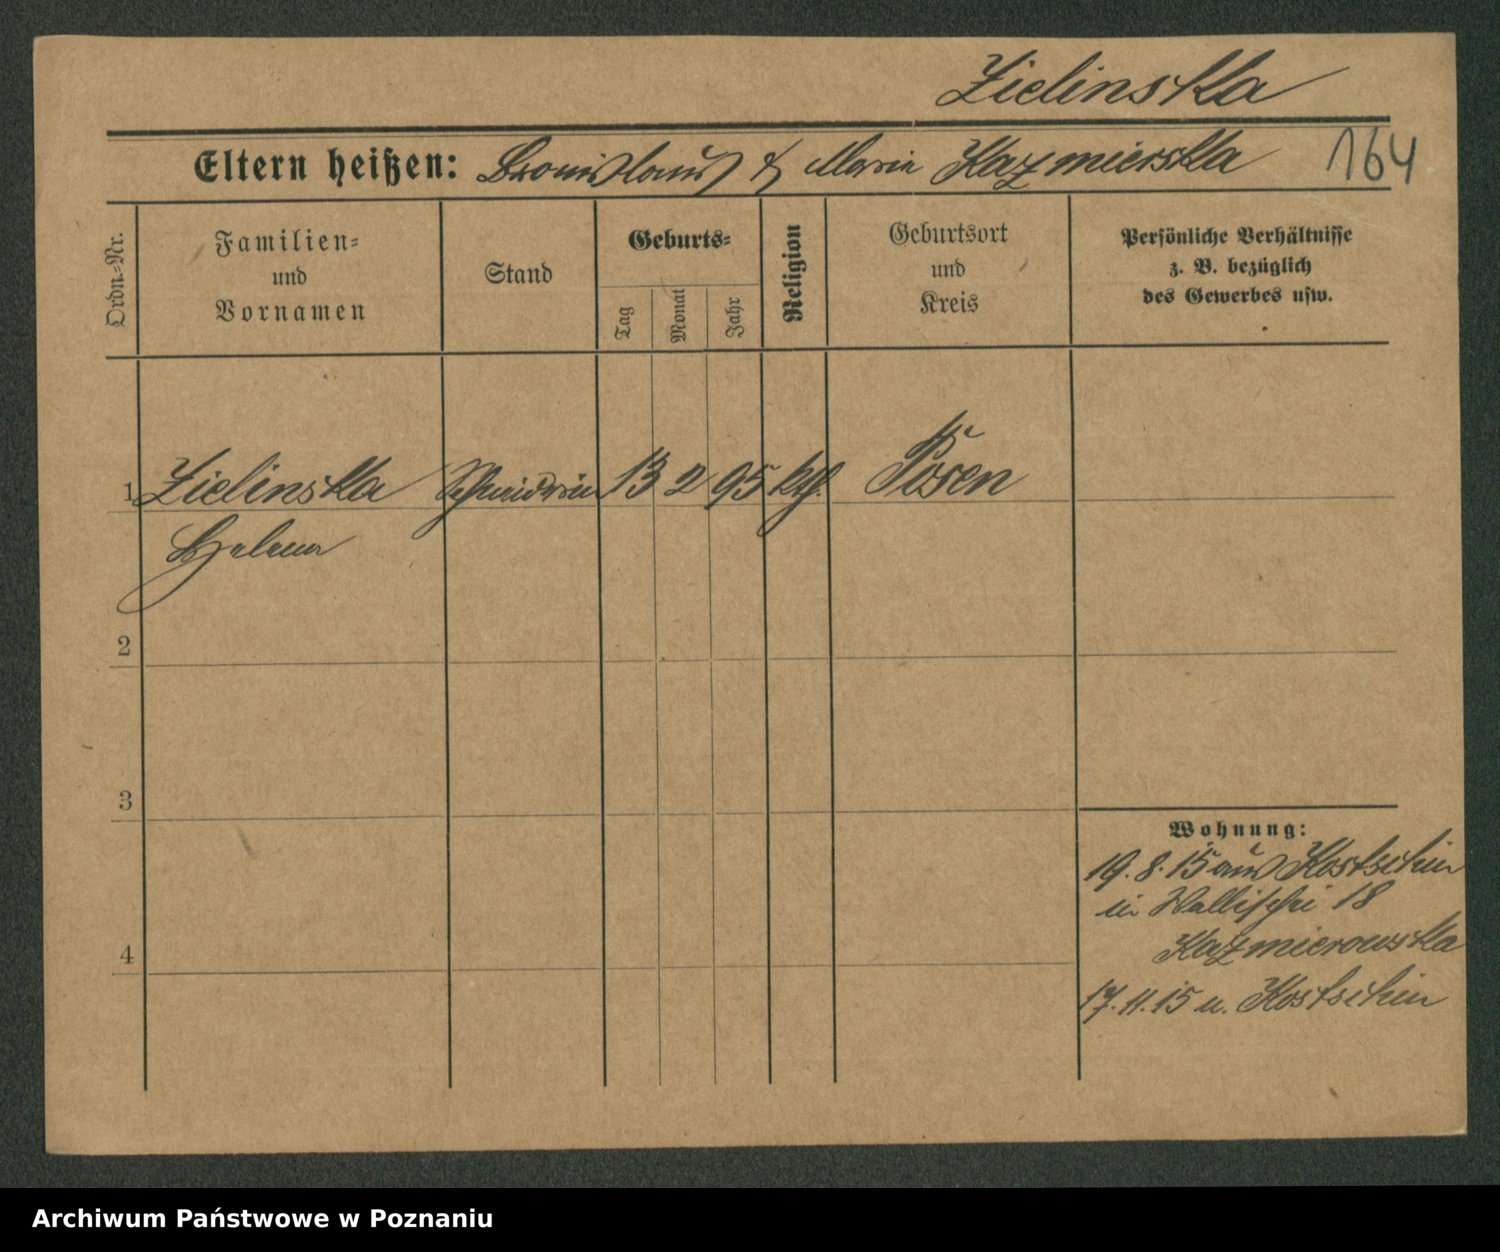 Zielinska
Eltern heißen: Bronislaus & Maria Kazmierska
164
Ordn.-Nr.
Familien-
und
Vornamen
Stand
Geburts-
Tag
Monat
Jahr
Religion
Geburtsort
und
Kreis
Persönliche Verhältnisse
z. B. bezüglich
des Gewerbes usw.
1 Zielinska Schneiderin 13 2 95 kth. Posen
Helena
2
3
4
Wohnung:
19. 8. 15 aus Kostschin
in Wallischei 18
Kazmierowska
17. 11. 15 n. Kostschin
Archiwum Państwowe w Poznaniu